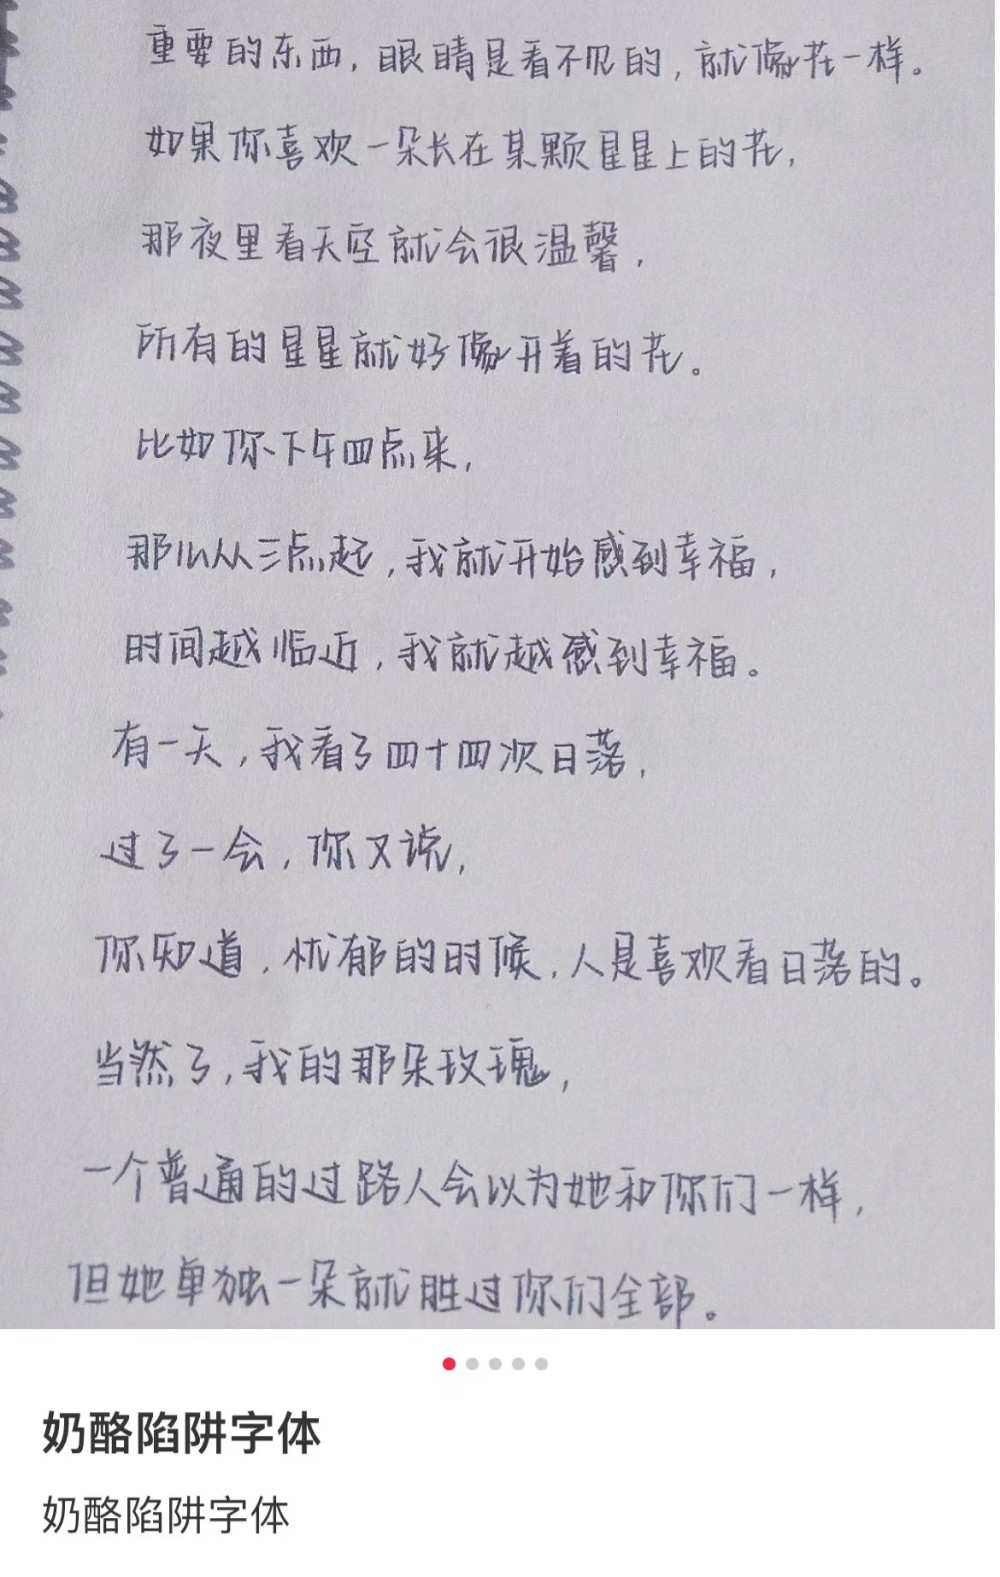 重要的东西，眼睛是看不见的，就像花一样。
如果你喜欢一朵长在某颗星星上的花，
那夜里看天空就会很温馨，
所有的星星就好像开着的花。
比如你下午四点来，
那么从三点起，我就开始感到幸福，
时间越临近，我就越感到幸福。
有一天，我看了四十四次日落，
过了一会，你又说，
你知道，忧郁的时候，人是喜欢看日落的。
当然了，我的那朵玫瑰，
一个普通的过路人会以为她和你们一样，
但她单独一朵就胜过你们全部。
奶酪陷阱字体
奶酪陷阱字体